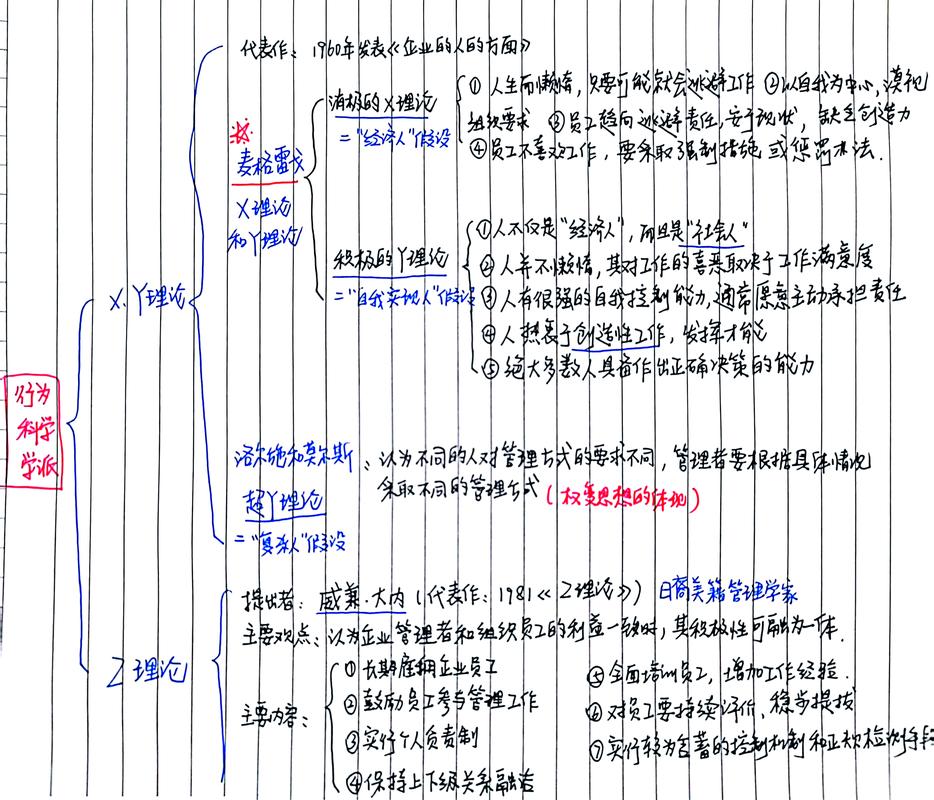 行为
科学
学派
X、Y理论
代表作：1960年发表《企业的人的方面》
麦格雷戈
X理论
和Y理论
消极的X理论
="经济人"假设
①人生而懒惰，只要可能就会逃避工作 ②以自我为中心，漠视
组织要求 ③员工趋向逃避责任，安于现状，缺乏创造力
④员工不喜欢工作，要采取强制措施或惩罚办法.
积极的Y理论
="自我实现人"假设
①人不仅是"经济人"，而且是"社会人"
②人并不懒惰，其对工作的喜恶取决于工作满意度
③人有很强的自我控制能力，通常愿意主动承担责任
④人热衷于创造性工作，发挥才能
⑤绝大多数人具备作出正确决策的能力
洛尔施和莫尔斯
超Y理论
="复杂人"假设
：认为不同的人对管理方式的要求不同，管理者要根据具体情况
采取不同的管理方式(权变思想的体现)
Z理论
提出者：威廉·大内(代表作：1981《Z理论》) 日裔美籍管理学家
主要观点：认为企业管理者和组织员工的利益一致时，其积极性可融为一体.
主要内容：
①长期雇拥企业员工
②鼓励员工参与管理工作
③实行个人负责制
④保持上下级关系融洽
⑤全面培训员工，增加工作经验.
⑥对员工要持续评价、稳步提拔
⑦实行较为含蓄的控制机制和正规检测手段